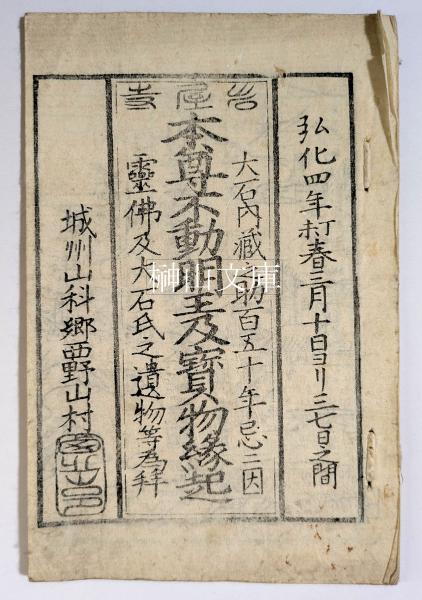 弘化四年打春三月十日ヨリ三七日之間
岩屋寺
大石内藏之助百五十年忌ニ因
本尊不動明王及寳物縁起
靈佛及大石氏之遺物等為拜
城州山科郷西野山村
榊山文庫